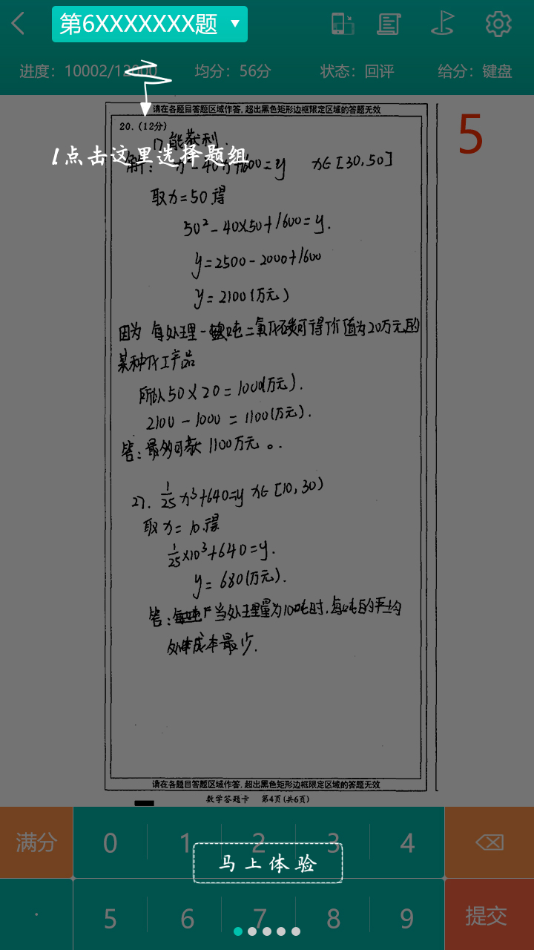 第6XXXXXXX题
进度：10002/12000 均分：56分 状态：回评 给分：键盘
请在各题目答题区域作答，超出黑色矩形边框限定区域的答题无效
5
20.（12分）
能获利.
1点击这里选择题组
解： x²-40x+1600=y x∈[30,50]
取x=50得
50²-40×50+1600=y.
y=2500-2000+1600
y=2100(万元)
因为 每处理一吨二氧化碳可得价值为20万元的
某种化工产品
所以50×20=1000(万元).
2100-1000=1100(万元).
答：最多可获1100万元。.
27. 1/25 x³+640=y x∈[10,30)
取x=10得
1/25×10³+640=y.
y=680(万元).
答： 当处理量为10吨时,每吨的平均
处理成本最少.
请在各题目答题区域作答，超出黑色矩形边框限定区域的答题无效
数学答题卡 第4页(共6页)
满分 0 1 2 3 4
马上体验
. 5 6 7 8 9 提交